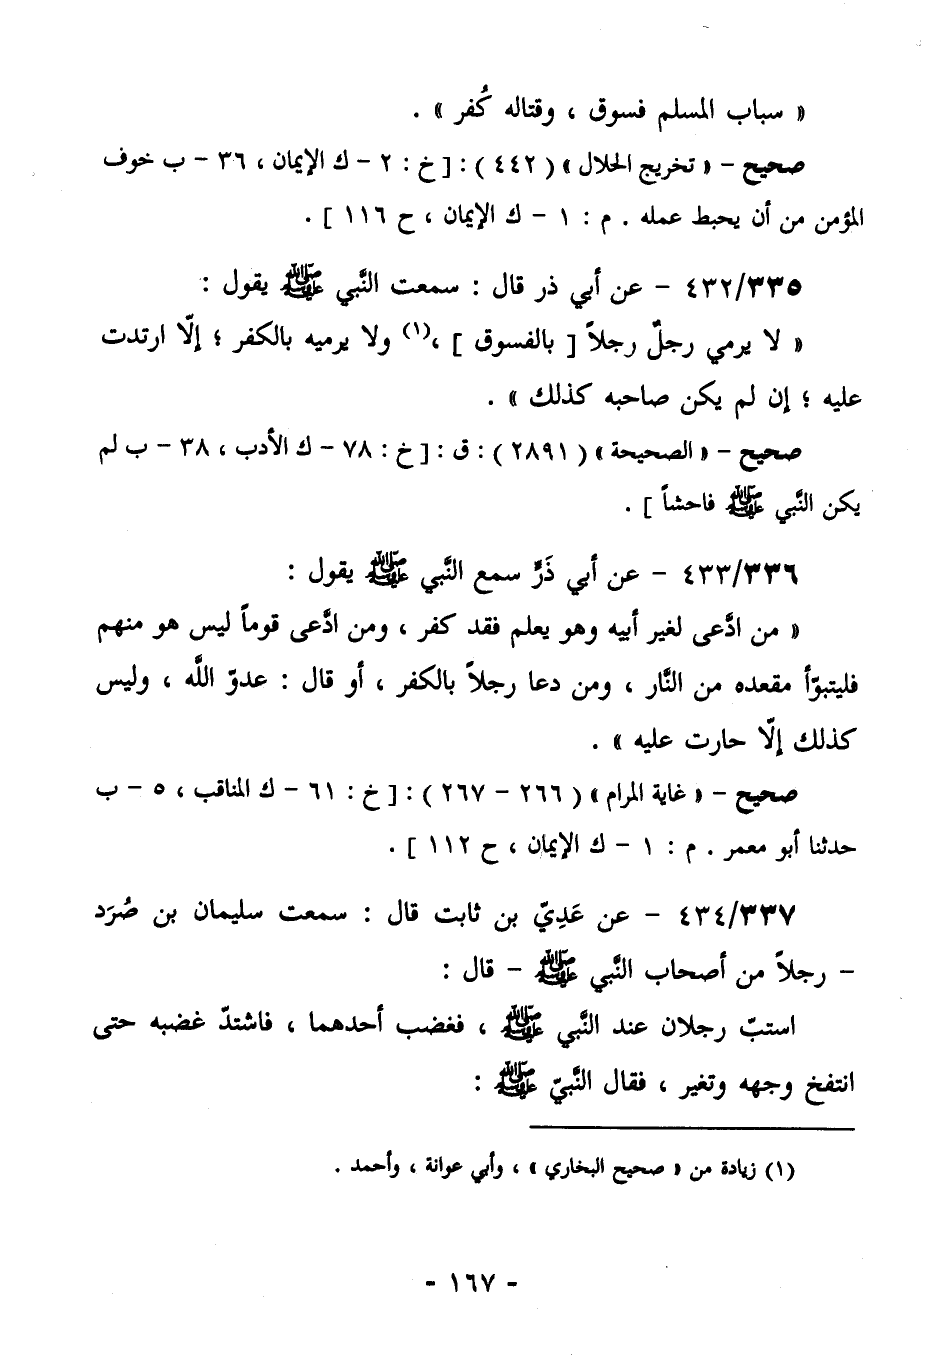 « سباب المسلم فسوق ، وقتاله كُفر » .
صحيح – « تخريج الحلال » ( ٤٤٢ ) : [ خ : ٢ – ك الإيمان ، ٣٦ – ب خوف
المؤمن من أن يحبط عمله . م : ١ – ك الإيمان ، ح ١١٦ ] .
٤٣٢/٣٣٥ – عن أبي ذر قال : سمعت النَّبي ﷺ يقول :
« لا يرمي رجلٌ رجلاً [ بالفسوق ] ،(١) ولا يرميه بالكفر ؛ إلّا ارتدت
عليه ؛ إن لم يكن صاحبه كذلك » .
صحيح – « الصحيحة » ( ٢٨٩١ ) : ق : [ خ : ٧٨ – ك الأدب ، ٣٨ – ب لم
يكن النَّبي ﷺ فاحشاً ] .
٤٣٣/٣٣٦ – عن أبي ذَرٍّ سمع النَّبي ﷺ يقول :
« من ادَّعى لغير أبيه وهو يعلم فقد كفر ، ومن ادَّعى قوماً ليس هو منهم
فليتبوّأ مقعده من النَّار ، ومن دعا رجلاً بالكفر ، أو قال : عدوّ اللَّه ، وليس
كذلك إلّا حارت عليه » .
صحيح – « غاية المرام » ( ٢٦٦ – ٢٦٧ ) : [ خ : ٦١ – ك المناقب ، ٥ – ب
حدثنا أبو معمر . م : ١ – ك الإيمان ، ح ١١٢ ] .
٤٣٤/٣٣٧ – عن عَدِيّ بن ثابت قال : سمعت سليمان بن صُرَد
– رجلاً من أصحاب النَّبي ﷺ – قال :
استبّ رجلان عند النَّبي ﷺ ، فغضب أحدهما ، فاشتدّ غضبه حتى
انتفخ وجهه وتغير ، فقال النَّبيّ ﷺ :
(١) زيادة من « صحيح البخاري » ، وأبي عوانة ، وأحمد .
- ١٦٧ -